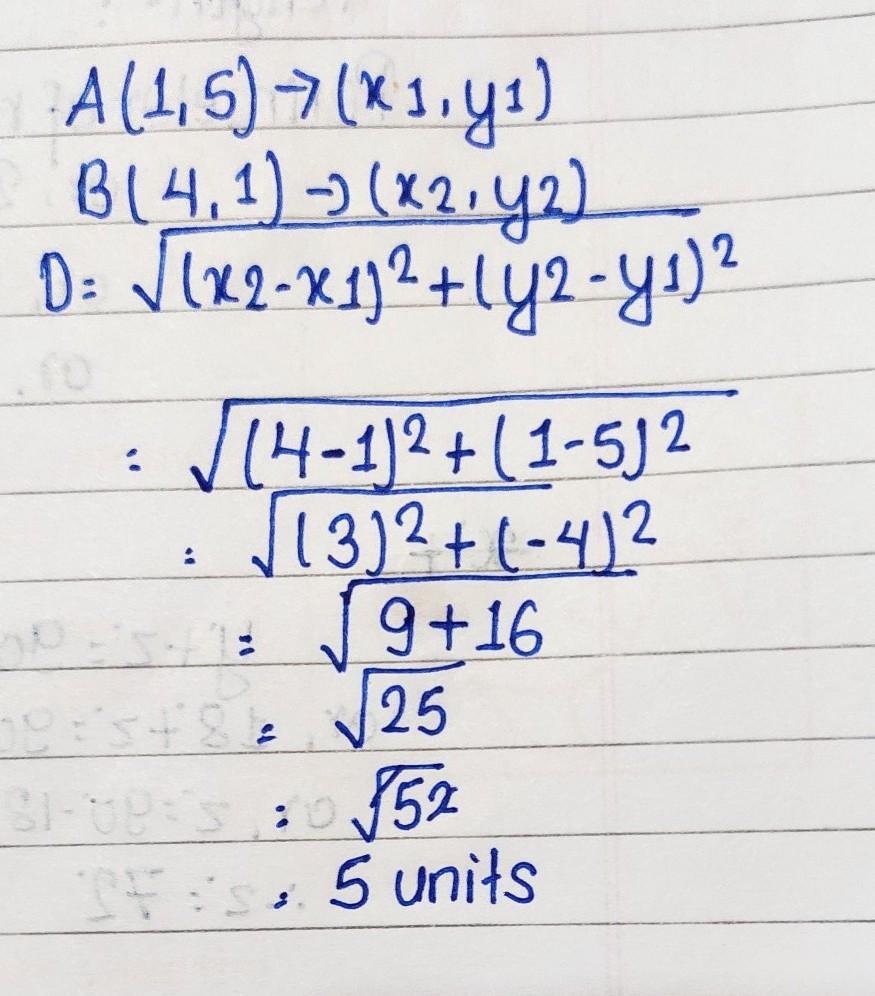 A(1,5)→(x1,y1)
B(4,1)→(x2,y2)
D= √(x2-x1)²+(y2-y1)²
= √(4-1)²+(1-5)²
= √(3)²+(-4)²
= √9+16
= √25
= √52
= 5 units